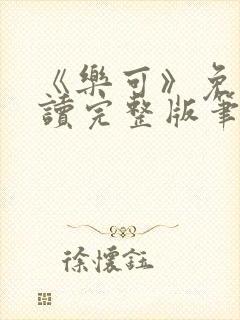 《樂可》免
讀完整版筆
徐懷鈺